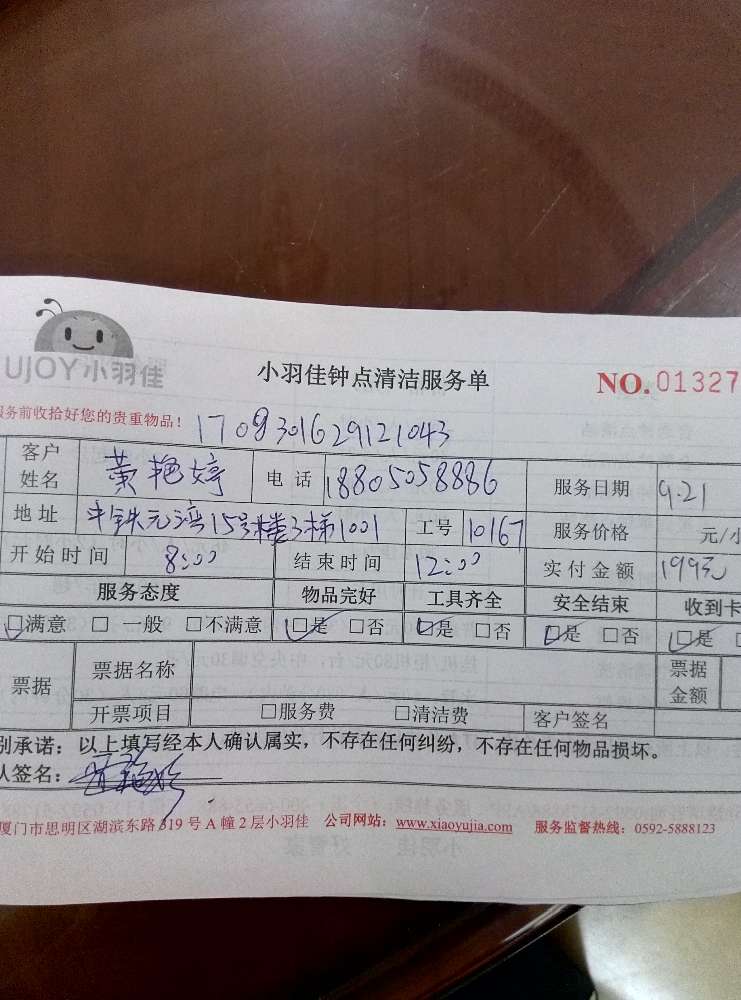 UJOY小羽佳
小羽佳钟点清洁服务单
NO. 01327
务前收拾好您的贵重物品！
1708301629121043
客户姓名 黄艳婷 电话 18805058886 服务日期 9.21
地址 中铁元湾15号楼3梯1001 工号 10167 服务价格 元/小
开始时间 8:00 结束时间 12:00 实付金额 199元
服务态度 物品完好 工具齐全 安全结束 收到卡
□满意 □一般 □不满意 □是 □否 □是 □否 □是 □否 □是
票据 票据名称 票据金额
开票项目 □服务费 □清洁费 客户签名
别承诺：以上填写经本人确认属实，不存在任何纠纷，不存在任何物品损坏。
人签名：
厦门市思明区湖滨东路319号A幢2层小羽佳 公司网站：www.xiaoyujia.com 服务监督热线：0592-5888123